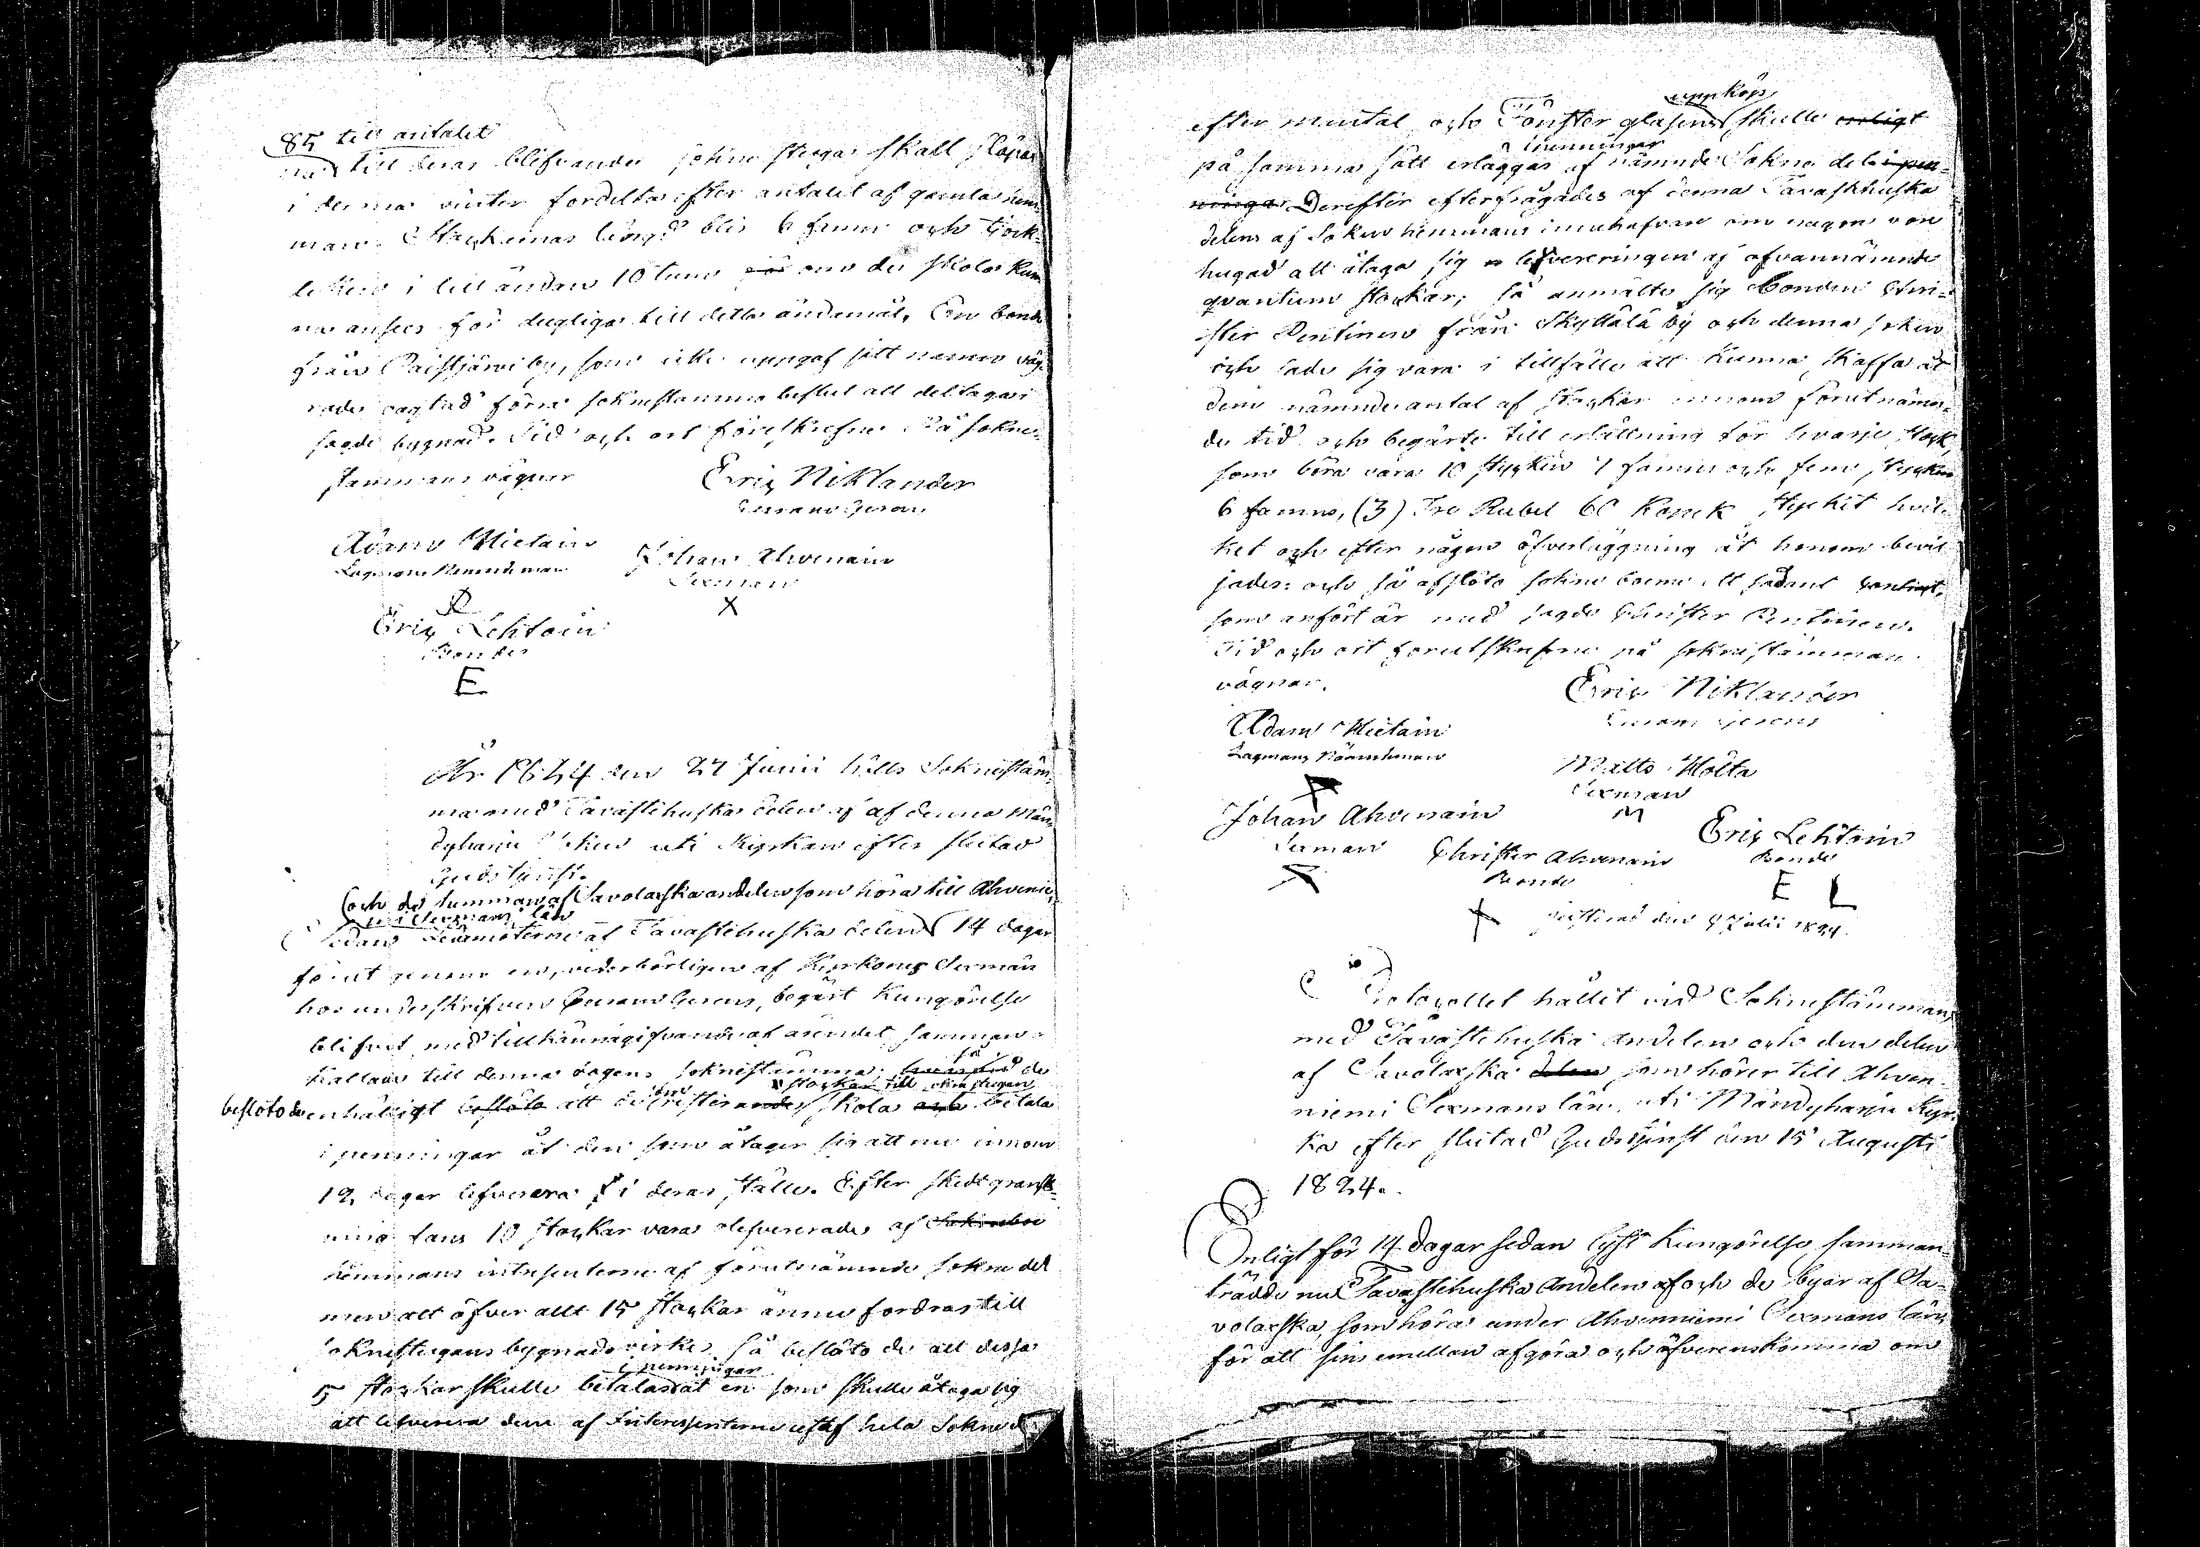 85 till antalet
till deras blifvande sokne stuga skall släpas
i denna vinter fördeltas efter antalet af gamla hem
man. Stockarnas längd blir 6 famn och tjock-
leken i lill ändan 10 tum om de skola kun
na anses för dugliga till detta ändamål. En bonde
från Paistjärvi by, som icke uppgaf sitt namn väg
rade oagtad förra soknestämmo beslut att deltaga i
sagde bygnad. Tid och ort föreskrefne På sokne-
stämmans vägnar
Eric Niklander
Adam Hietain
Lagmans Nämndeman
Johan Ahvenain
Sexman
X
Eric Lehtoin
Bonde
E
År 1824 den 27 Junii hölls Soknestäm-
ma med Tavastehuska delen af denna Män
dyharju Soken uti Kyrkan efter slutad
Gudstjenst.
och de hemman af Savolaxska andelen som höra till Ahvenie-
mi Sexmans län
Sedan Ledamöterne af Tavastehuska delen 14 dagar
förut genom en, vederbörligen af Kyrkones Sexmän
hos underskrifven begärt Kungörelse
blifvit med tillkännagifvande af ärendet samman-
kallade till denna dagens soknestämma de
stockar till sokne stugan
beslöto de enhälligt beslöto att de resterande skola och betala
i penningar åt den som åtager sig att nu innom
12 dagar lefverera i deras ställe. Efter skedt gransk-
ning fans 10 stockar vara olefvererade af Sokneboe
hemmans intressenterne af förutnämnde sokne del
men att öfver allt 15 stockar ännu fordras till
Soknestugans bygnads virke, så beslöto de att dessa
i penningar
15 stockar skulle betalas åt en som skulle åtaga sig
att lefverera dem af Intressenterne utaf hela Sokne d
uppköp
efter mantal och Fönster glasens skulle enligt
i penningar
på samma sätt erläggas af nämnde Sokne del i pen-
ningar Derefter efterfrågades af denna Tavastehuska
delens af Soken hemmans innehafvare om någon vore
hugad att åtaga sig lefvereringen af ofvannämnde
quantum stockar; så anmälte sig Bonden Chri-
ster Pentinen från Skyttälä by och denna soken
och sade sig vara i tillfälle att kunna skaffa åt
dem nämnde antal af stockar innom förutnämn-
de tid och begärte till erlättning för hvarje stock,
som böra vara 10 stycken 7 famn och fem stycken
6 famns, (3) Tre Rubel 60 Kopek stycket hvil-
ket och efter någon öfverläggning åt honom bevil-
jades: och så afslöto sokne boerne ett sådant contract,
som anfört är med sagde Christer Pentinen.
Tid och ort förutskrefne på soknestämmans
vägnar.
Eric Niklander
Adam Hietain
Lagmans Nämndeman
Matts Hölta
Sexman
M
Johan Ahvenain
Sexman
Christer Ahvenain
Bonde
Eric Lehtoin
Bonde
E L
justerad den 4 Julii 1824.
Protocollet hållit vid Soknestämman
med Tavastehuska andelen och den delen
af Savolaxska delen som hörer till Ahven-
niemi Sexmans län, uti Mändyharju Kyr-
ka efter slutad Gudstjenst den 15 Augusti
1824.
Enligt för 14 dagar sedan lyst Kungörelse samman-
trädde nu Tavastehuska Andelen af och de byar af Sa-
volaxska, som höra under Ahvenniemi Sexmans län
för att sins emellan afgöra och öfverenskomma om